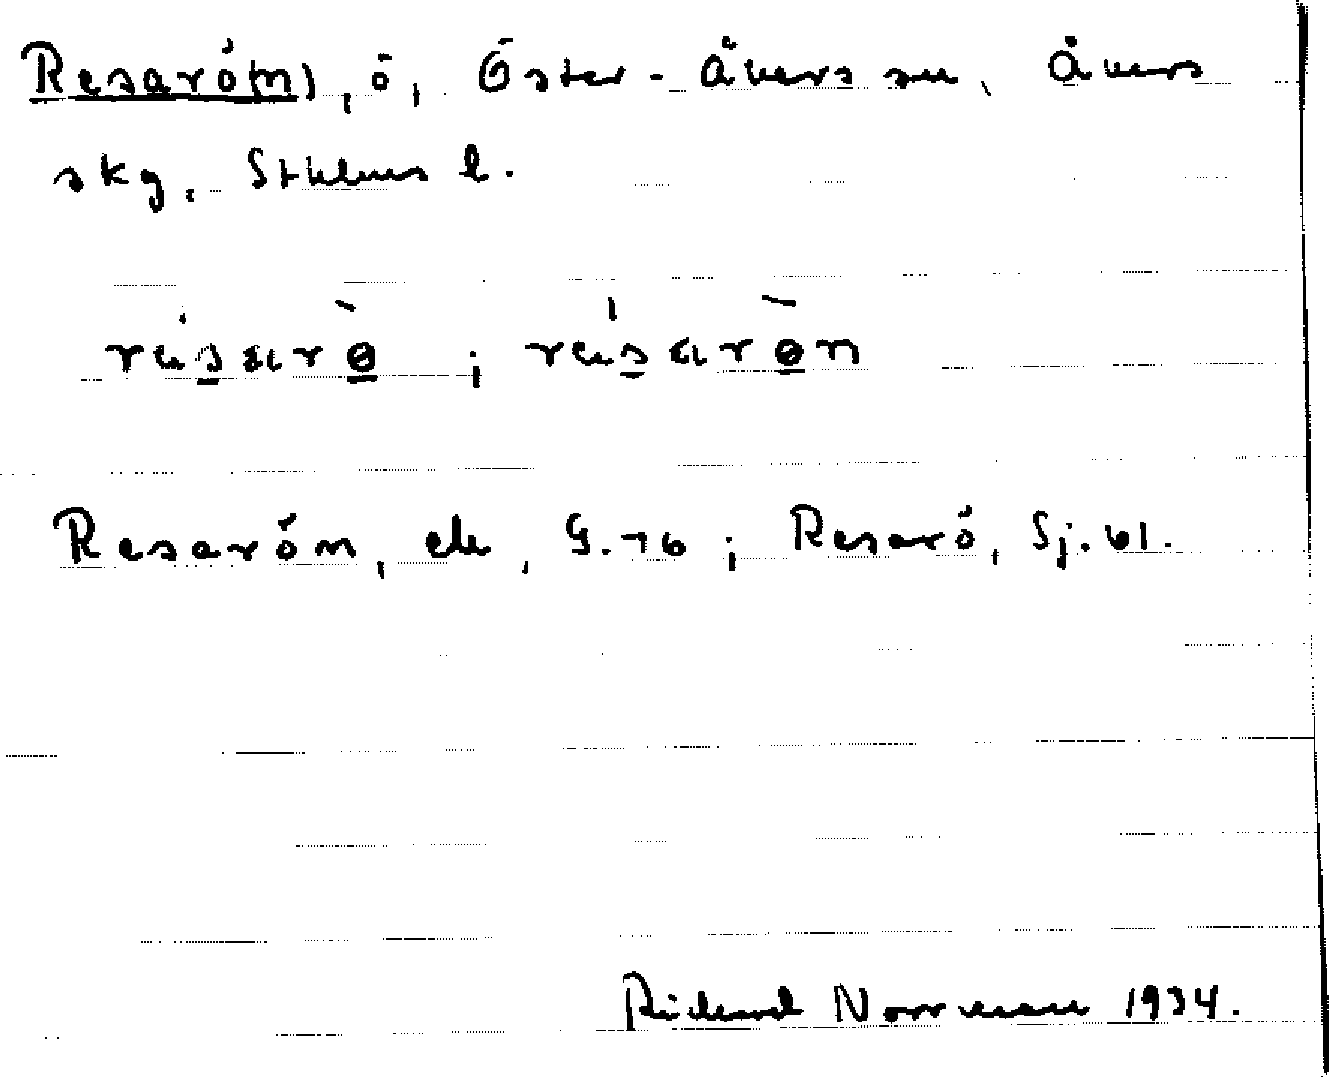 Resarö(n), ö, Öster-Åkers sn, Åkers
skg, Sthlms l.
résarò ; résaròn
Resarön, ek, G.76 ; Resarö, Sj.61.
Rickard Norrman 1934.